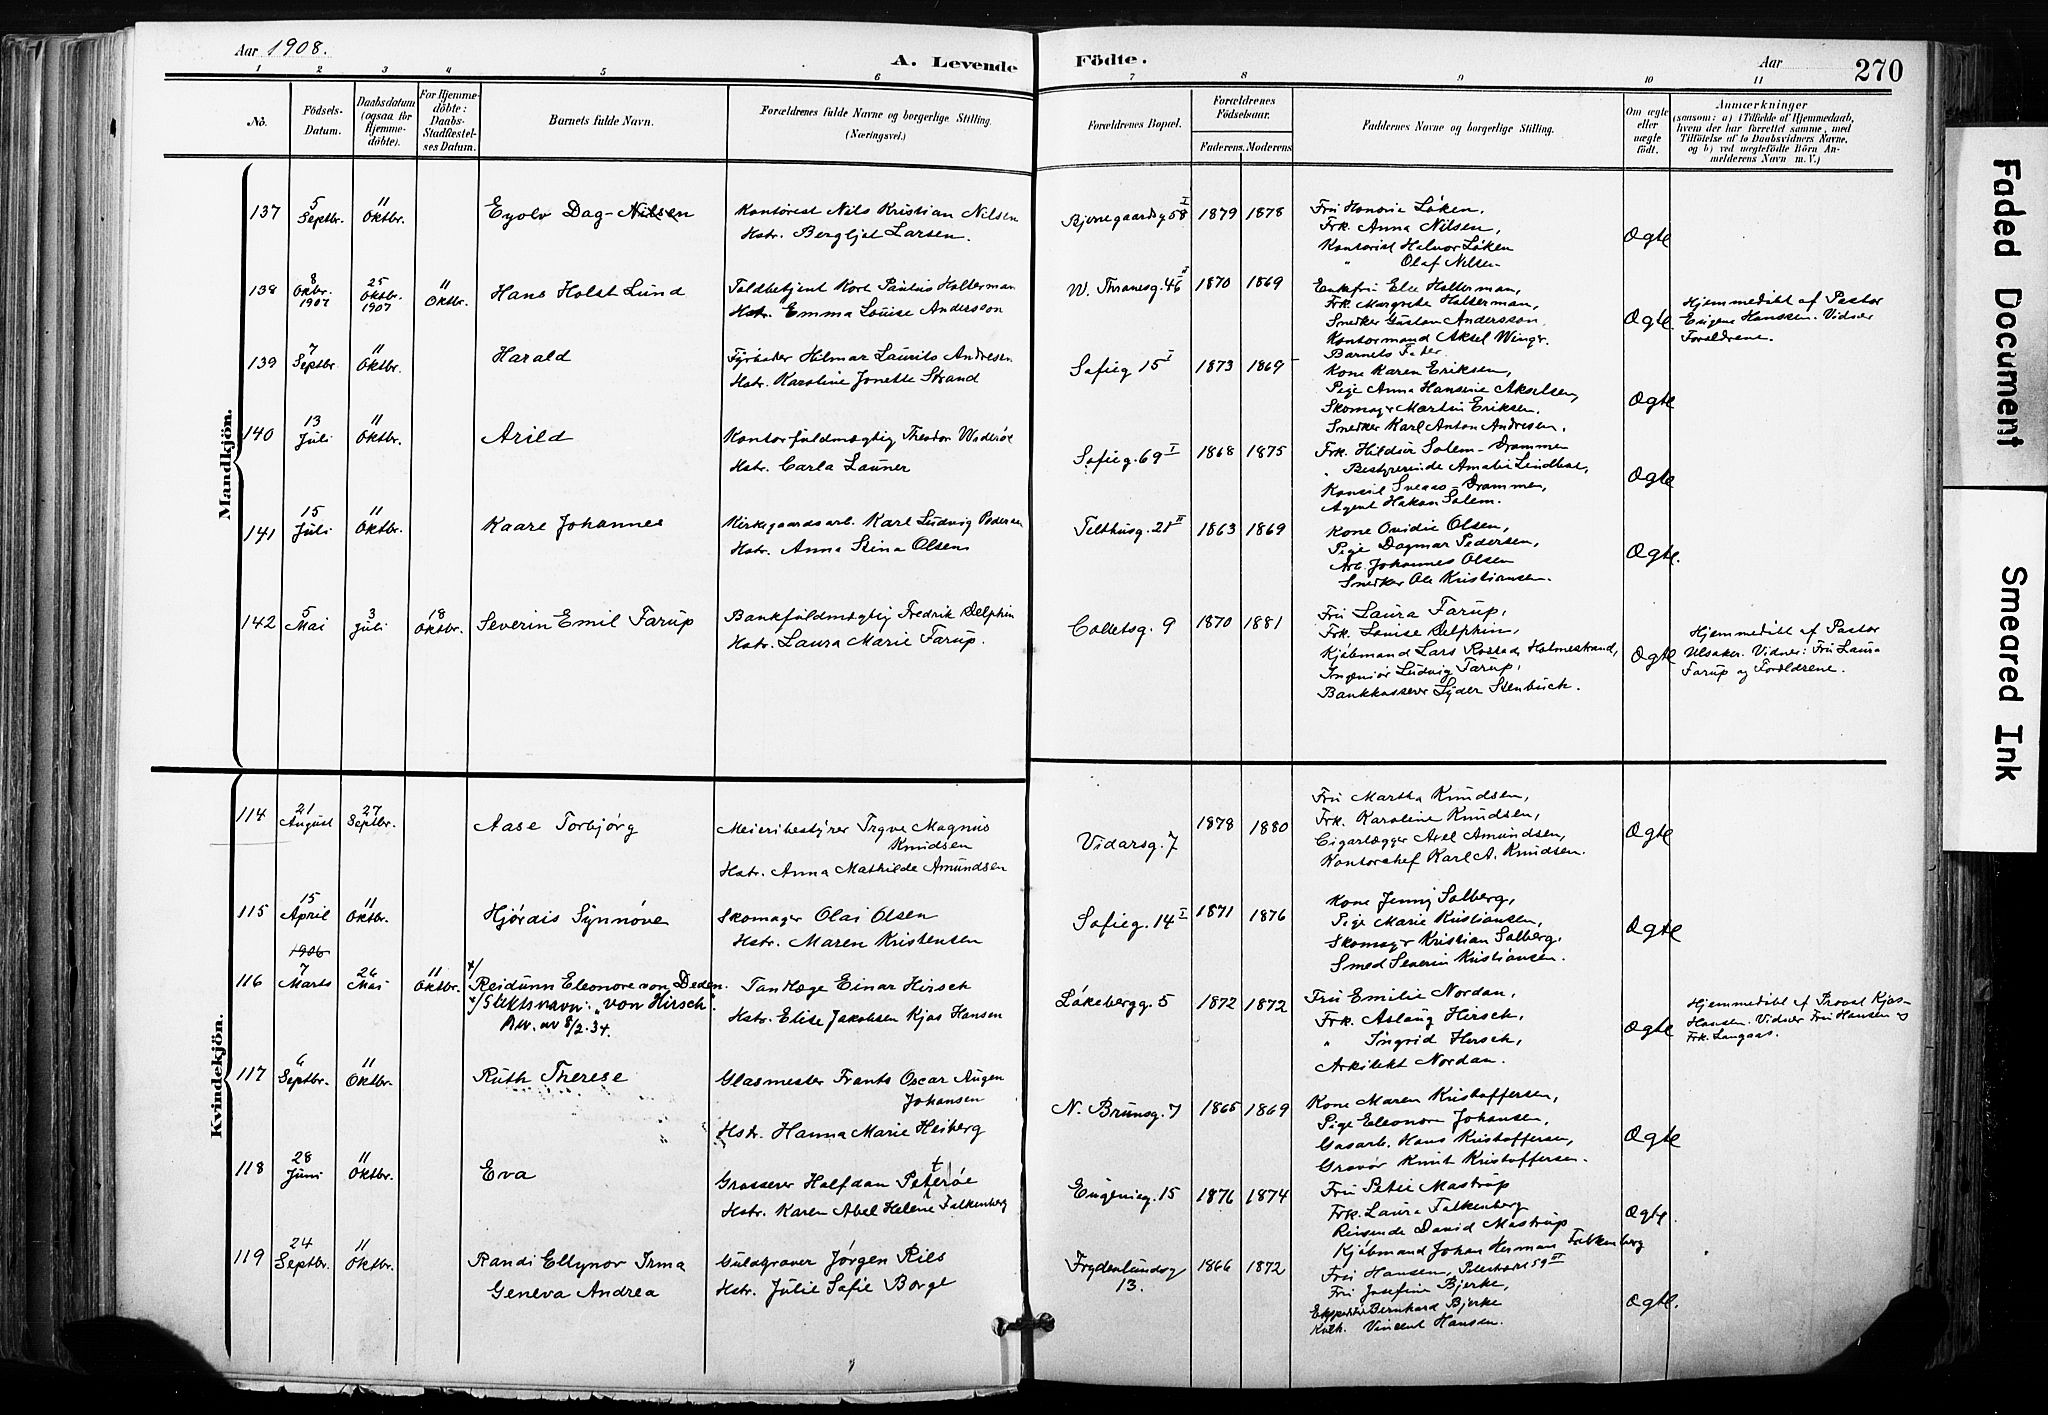 Aar 1908.
A. Levende
Födte.
Aar
270
1 2 3 4 5 6 7 8 9 10 11
No.
Födsels-
Datum.
Daabsdatum
(ogsaa for
Hjemme-
döbte).
For Hjemme-
döbte:
Daabs-
Stadfæstel-
ses Datum.
Barnets fulde Navn.
Forældrenes fulde Navne og borgerlige Stilling.
(Næringsvei.)
Forældrenes Bopæl.
Forældrenes
Födselsaar.
Faderens. Moderens
Faddernes Navne og borgerlige Stilling.
Om ægte
eller
uægte
födt.
Anmærkninger
(saasom: a) i Tilfælde af Hjemmedaab,
hvem der har forrettet samme, med
Tilföielse af to Daabsvidners Navne,
og b) ved uægtefödte Börn An-
melderens Navn m. V.)
Mandkjön.
137
5
Septbr.
11
Oktbr.
Eyolv Dag-Nilsen
Kontorist Nils Kristian Nilsen
Hstr. Bergljot Larsen.
Bjerregaardsg 58 I
1879 1878
Fru Honorie Løken,
Frk. Anna Nilsen,
Kontorist Halvor Løken
" Olaf Nilsen
Ægte
138
8
Okbr.
1907
25
Oktbr.
1907
11
Oktbr.
Hans Holst Lund
Toldbetjent Kort Paulus Holterman
Hstr. Emma Louise Andersson
W. Thranesg. 46
1870 1869
Enkefru Else Holterman,
Frk. Margrete Holterman,
Snedker Gustav Andersson,
Kontormand Aksel Winge.
Barnets Fader.
Ægte.
Hjemmedøbt af Pastor
Eugene Hanssen. Vidner
Forældrene.
139
7
Septbr.
11
Oktbr.
Harald
Fyrbøder Hilmar Laurits Andresen
Hstr. Karoline Jonette Strand
Sofieg 15 I
1873 1869
Kone Karen Eriksen,
Pige Anna Hansine Akselsen,
Skomagr Martin Eriksen.
Snedker Karl Anton Andresen.
Ægte
140
13
Juli
11
Oktbr.
Arild
Kontorfuldmægtig Theodor Widerøe
Hstr. Carla Launer
Sofieg. 69 I
1868 1875
Frk. Hildur Solem - Drammen
" Bestyrerinde Amalie Lindboe,
Konsul Sveaas - Drammen,
Agent Hakon Solem.
Ægte
141
15
Juli
11
Oktbr.
Kaare Johannes
Kirkegaardsarb. Karl Ludvig Pedersen
Hstr. Anna Stina Olsen
Telthusg. 21 II
1863 1869
Kone Ovidie Olsen,
Pige Dagmar Pedersen,
Arb. Johannes Olsen
Snedker Ole Kristiansen.
Ægte.
142
5
Mai
3
Juli
18
Oktbr.
Severin Emil Farup
Bankfuldmægtig Fredrik Delphin
Hstr. Laura Marie Farup.
Colletsg. 9
1870 1881
Fru Laura Farup,
Frk. Louise Delphin,
Kjøbmand Lars Rostad, Holmestrand,
Ingeniør Ludvig Farup,
Bankkasserer Lyder Stenbuch.
Ægte
Hjemmedøbt af Pastor
Ulsaker. Vidner: Fru Laura
Farup og Forældrene.
Kvindekjön.
114
21
August
27
Septbr.
Aase Torbjørg
Meieribestyrer Trgve Magnus
Knudsen
Hstr. Anna Mathilde Amundsen
Vidarsg. 7
1878 1880
Fru Martha Knudsen,
Frk. Karoline Knudsen,
Cigarlægger Axel Amundsen,
Kontorchef Karl A. Knudsen.
Ægte
115
15
April
11
Oktbr.
Hjørdis Synnøve
Skomager Olai Olsen
Hstr. Maren Kristensen
Sofieg. 14 I
1871 1876
Kone Jenny Solberg,
Pige Marie Kristiansen,
Skomagr Kristian Solberg,
Smed Severin Kristiansen.
Ægte
1906
116
7
Marts
26
Mai
11
Oktbr.
x/
Reidunn Eleonore von Deden.
x/ Slektsnavn: "von Hirsch".
Bev. av 8/2.34.
Tandlæge Einar Hirsch
Hstr. Elise Jakobsen Kjos Hansen
Løkebergg. 5
1872 1872
Fru Emilie Nordan,
Frk. Aslaug Hirsch,
" Ingrid Hirsch,
Arkitekt Nordan.
Ægte
Hjemmedøbt af Provst Kjos-
Hansen. Vidner Fru Hansen og
Frk. Langaas.
117
6
Septbr.
11
Oktbr.
Ruth Therese
Glasmester Frants Oscar Augen
Johansen
Hstr. Hanna Marie Heiberg
N. Brunsg. 7
1865 1869
Kone Maren Kristoffersen,
Pige Eleonora Johansen,
Gasarb. Hans Kristoffersen,
Gravør Knut Kristoffersen.
Ægte
118
28
Juni
11
Oktbr.
Eva
Grosserer Halfdan Peterøe
Hstr. Karen Abel Helene Falkenberg
Eugenieg. 15
1876 1874
Fru Petie Mastrup
Frk. Laura Falkenberg
Reisende David Mastrup
Kjøbmand Johan Herman Falkenberg
Ægte.
119
24
Septbr.
11
Oktbr.
Randi Ellynor Irma
Geneva Andrea
Guldgraver Jørgen Riis
Hstr. Julie Sofie Borge
Frydenlundsg
13.
1866 1872
Fru Hansen, Pilestræde 59 III
Fru Josefine Bjerke,
Ekspeditør Bernhard Bjerke
Vincent Hansen.
Ægte.
Faded Document
Smeared Ink